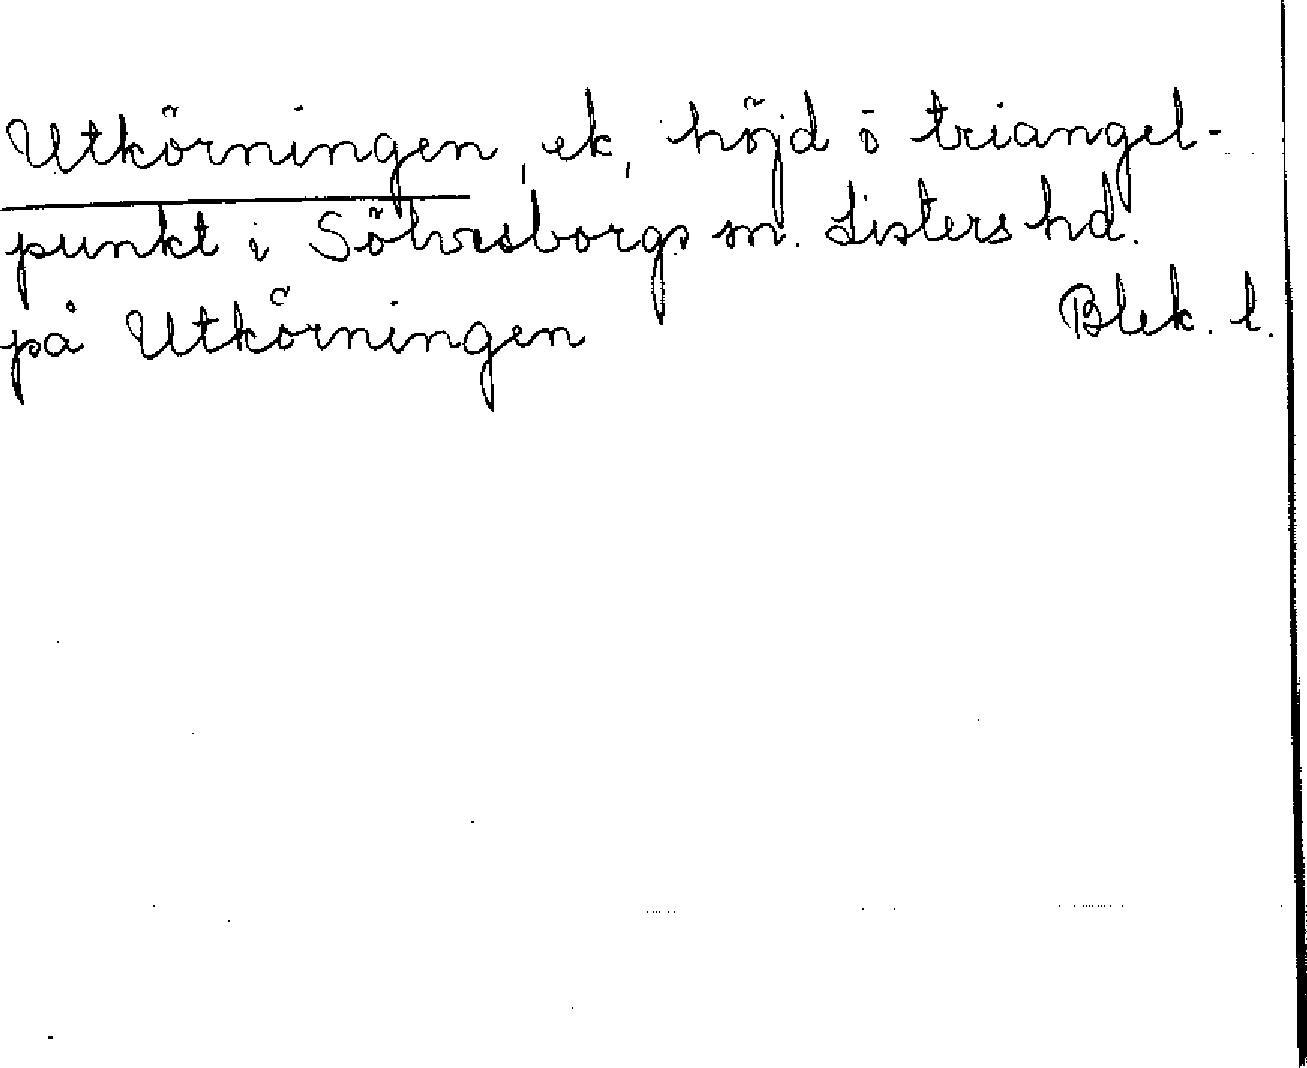 Utkörningen, ek, höjd o triangel-
punkt i Sölvesborgs sn. Listers hd.
på Utkörningen Blek. l.